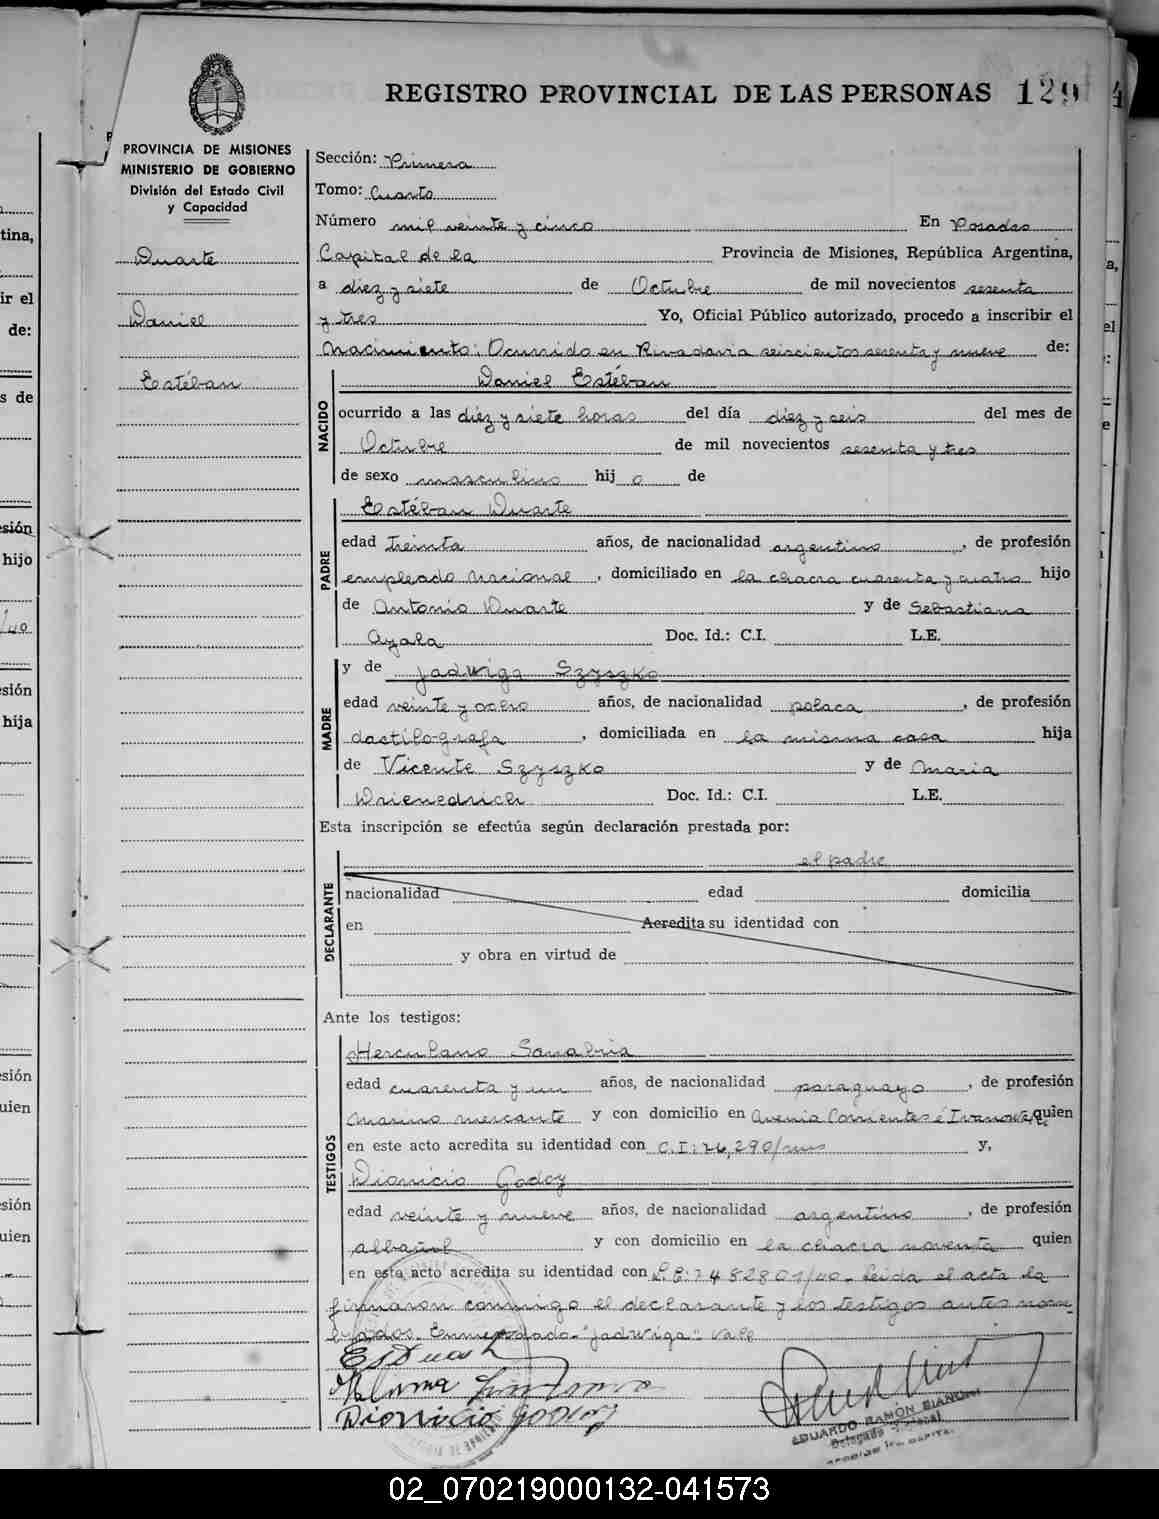 REGISTRO PROVINCIAL DE LAS PERSONAS 129
PROVINCIA DE MISIONES
MINISTERIO DE GOBIERNO
División del Estado Civil
y Capacidad
Duarte
Daniel
Estéban
Sección: Primera
Tomo: Cuarto
Número mil veinte y cinco En Posadas
Capital de la Provincia de Misiones, República Argentina,
a diez y siete de Octubre de mil novecientos sesenta
y tres Yo, Oficial Público autorizado, procedo a inscribir el
Nacimiento: Ocurrido en Rivadavia seiscientos sesenta y nueve de:
Daniel Estéban
NACIDO
ocurrido a las diéz y siete horas del día diéz y seis del mes de
Octubre de mil novecientos sesenta y tres
de sexo masculino hij o de
Estéban Duarte
PADRE
edad treinta años, de nacionalidad argentino, de profesión
empleado nacional, domiciliado en la chacra cuarenta y cuatro hijo
de Antonio Duarte y de Sebastiana
Ayala Doc. Id.: C.I. L.E.
MADRE
y de Jadwiga Szyszko
edad veinte y ocho años, de nacionalidad polaca, de profesión
dactilografa, domiciliada en la misma casa hija
de Vicente Szyszko y de Maria
Doc. Id.: C.I. L.E.
Esta inscripción se efectúa según declaración prestada por:
el padre
DECLARANTE
nacionalidad edad domicilia
en Acredita su identidad con
y obra en virtud de
Ante los testigos:
TESTIGOS
Herculano Sanabria
edad cuarenta y un años, de nacionalidad paraguayo, de profesión
Marino mercante y con domicilio en Avenia Corrientes é quien
en este acto acredita su identidad con C.I: y,
Dionicio Godoy
edad veinte y nueve años, de nacionalidad argentino, de profesión
albañil y con domicilio en la chacra noventa quien
en este acto acredita su identidad con Leida el acta la
firmaron conmigo el declarante y los testigos antes nom-
brados. Enmendado-"Jadwiga"- Vale
Dionicio Godoy
EDUARDO RAMÓN BIANCHI
02_070219000132-041573